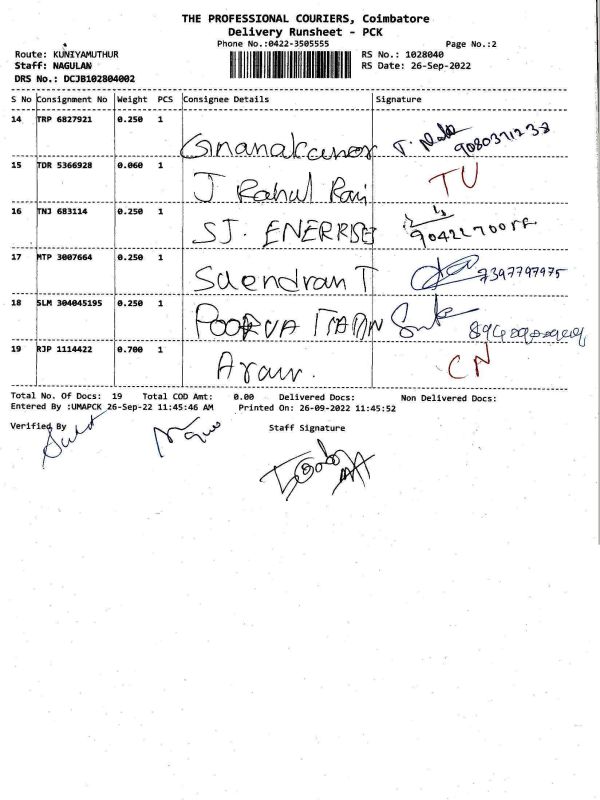 THE PROFESSIONAL COURIERS, Coimbatore
Delivery Runsheet - PCK
Phone No.:0422-3505555 Page No.:2
Route: KUNIYAMUTHUR RS No.: 1028040
Staff: NAGULAN RS Date: 26-Sep-2022
DRS No.: DCJB102804002
S No Consignment No Weight PCS Consignee Details Signature
14 TRP 6827921 0.250 1 9080371238
15 TDR 5366928 0.060 1 J Rahul Raj TU
16 TNJ 683114 0.250 1 SJ. ENERRISE
17 MTP 3007664 0.250 1 T 7397797975
18 SLM 304045195 0.250 1 POORVA
19 RJP 1114422 0.700 1 CN
Total No. Of Docs: 19 Total COD Amt: 0.00 Delivered Docs: Non Delivered Docs:
Entered By :UMAPCK 26-Sep-22 11:45:46 AM Printed On: 26-09-2022 11:45:52
Verified By Staff Signature